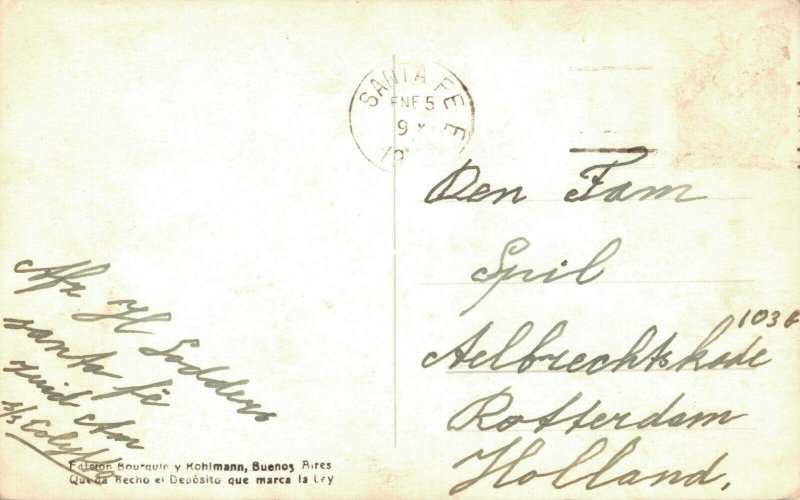 SANTA FE
ENE 5
9
19
F.E
Den Fam
Spil
Aelbrechtskade 103b
Rotterdam
Holland,
Afz H Sodders
santa fé
zuid Am
s/s
Edición Bourquin y Kohlmann, Buenos Aires
Queda Hecho el Depósito que marca la Ley